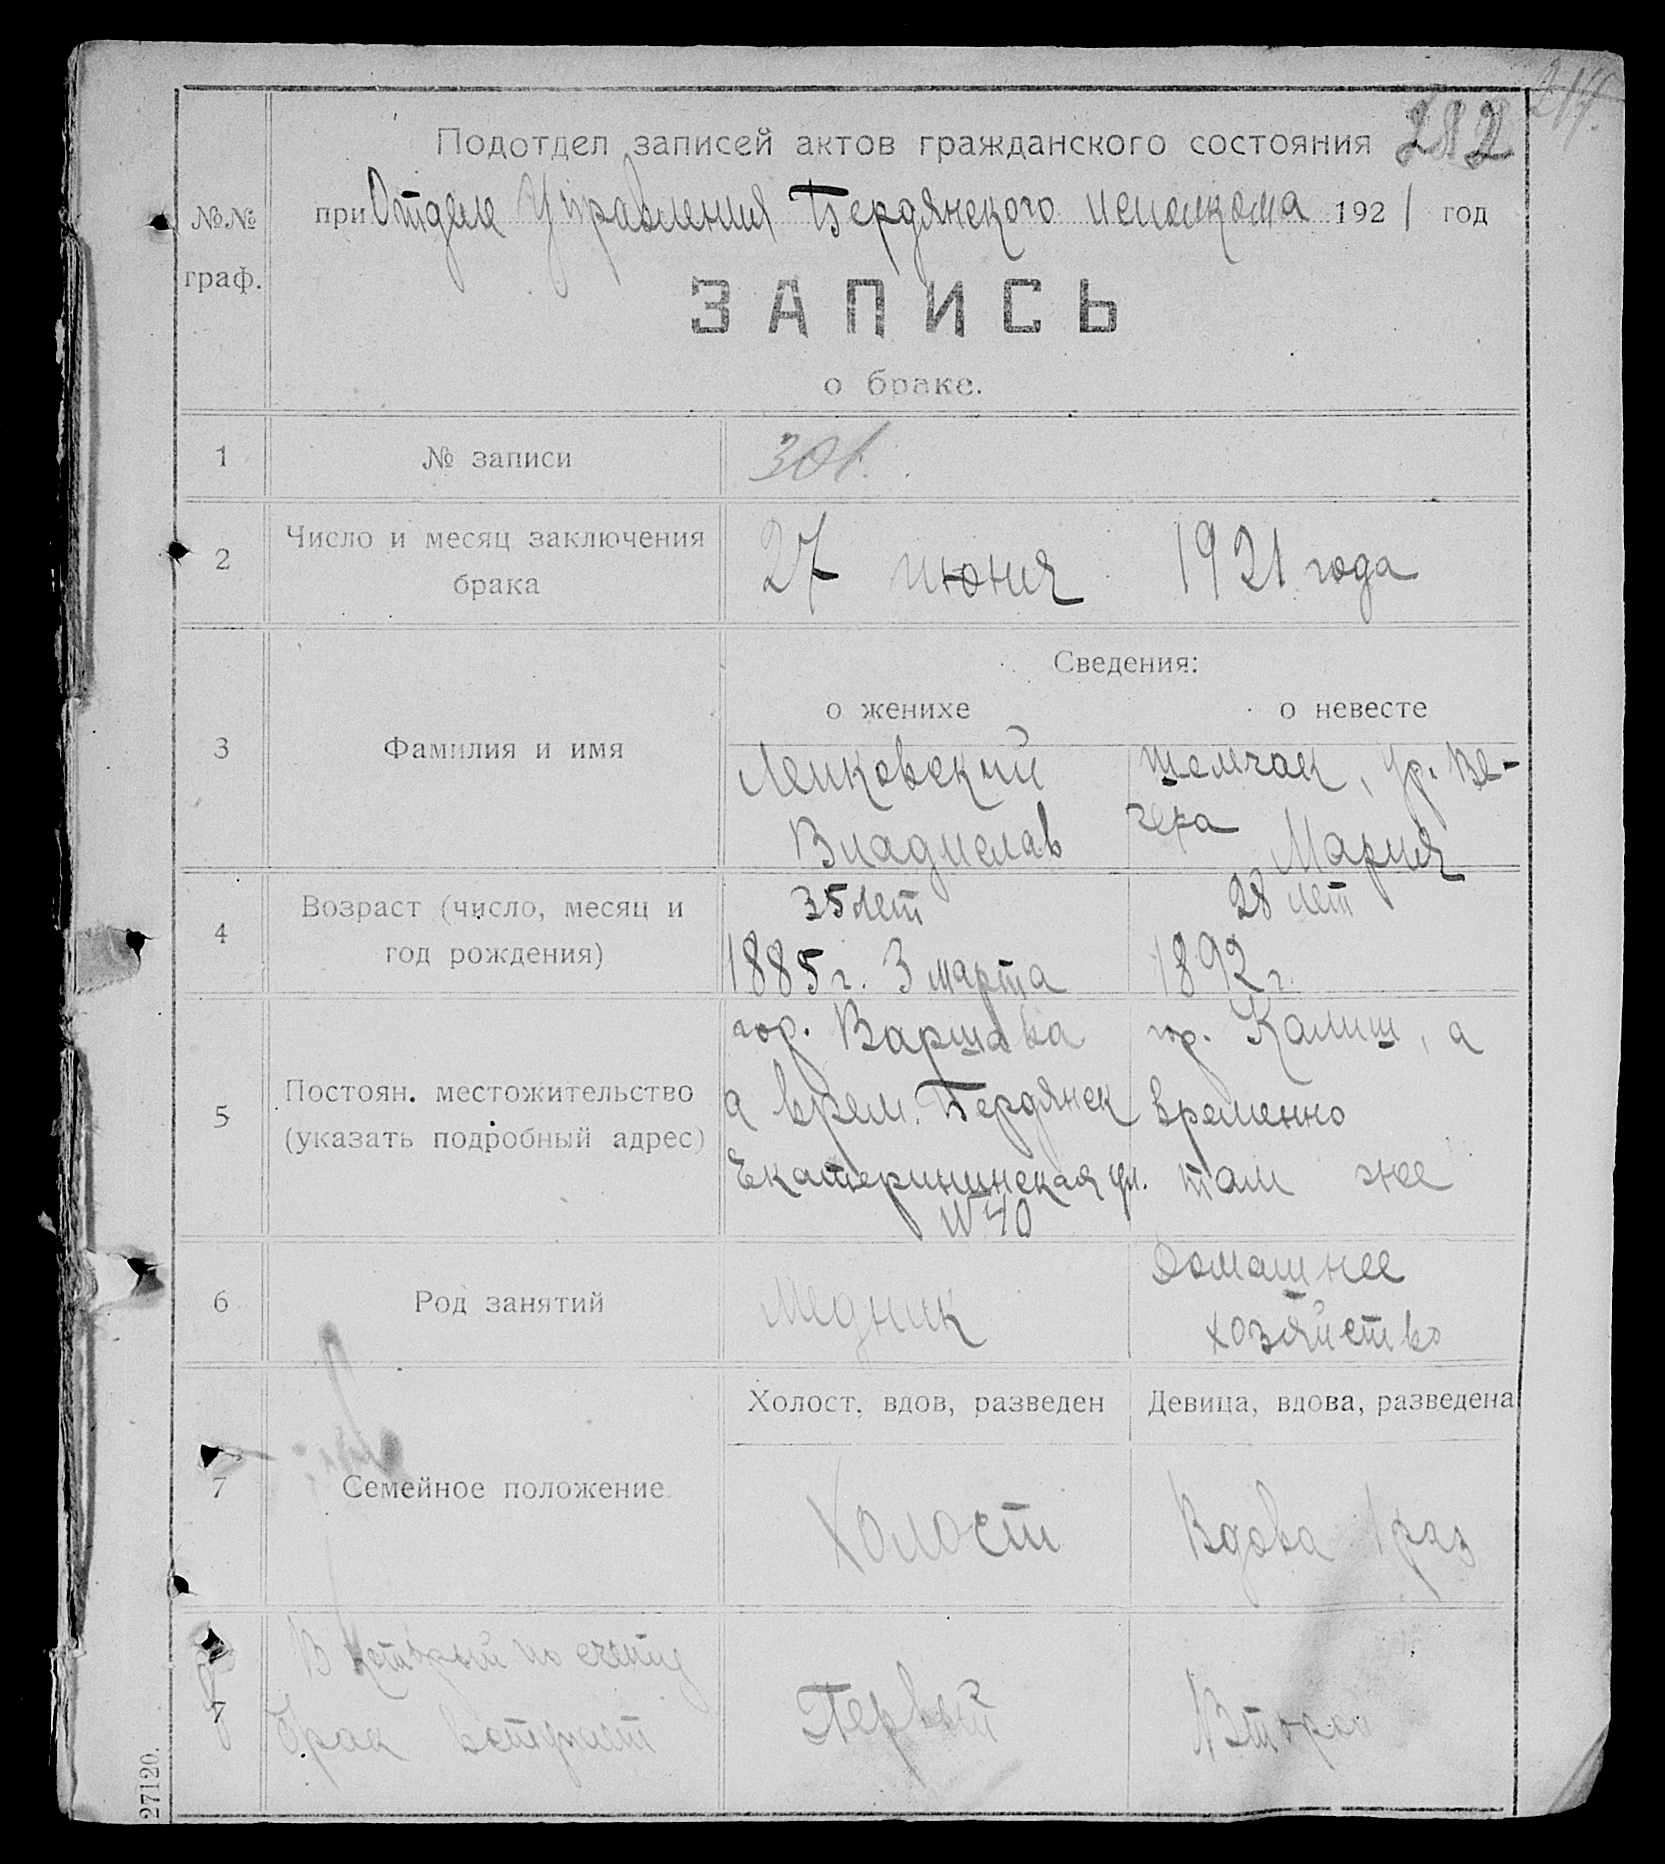 282
Подотдел записей актов гражданского состояния
при Отделе Управления Бердянского исполкома 1921 год
№№
граф.
ЗАПИСЬ
о браке.
1 № записи 301.
2 Число и месяц заключения
брака
27 июня 1921 года
Сведения:
о женихе о невесте
3 Фамилия и имя
Ленковский
Владислав
Шемчак, ур. Ве-
чера
Мария
4 Возраст (число, месяц и
год рождения)
35 лет
1885 г. 3 марта
28 лет
1892 г.
5 Постоян. местожительство
(указать подробный адрес)
гор. Варшава
а врем. Бердянск
Екатерининская ул.
№ 40
гор. Калиш, а
временно
там же
6 Род занятий
Медник
Домашнее
хозяйство
7 Семейное положение
Холост, вдов, разведен
Девица, вдова, разведена
Холост
Вдова 1 раз
7 В который по счету
брак вступает
Первый
Второй
27120.